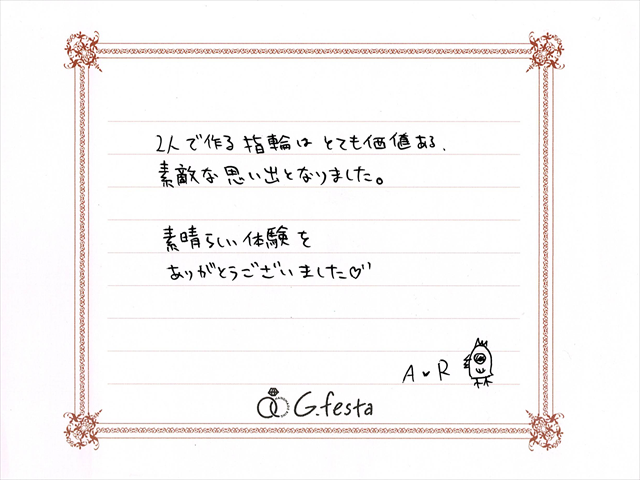 2人で作る指輪はとても価値ある、
素敵な思い出となりました。
素晴らしい体験を
ありがとうございました♡
A♥R
G.festa